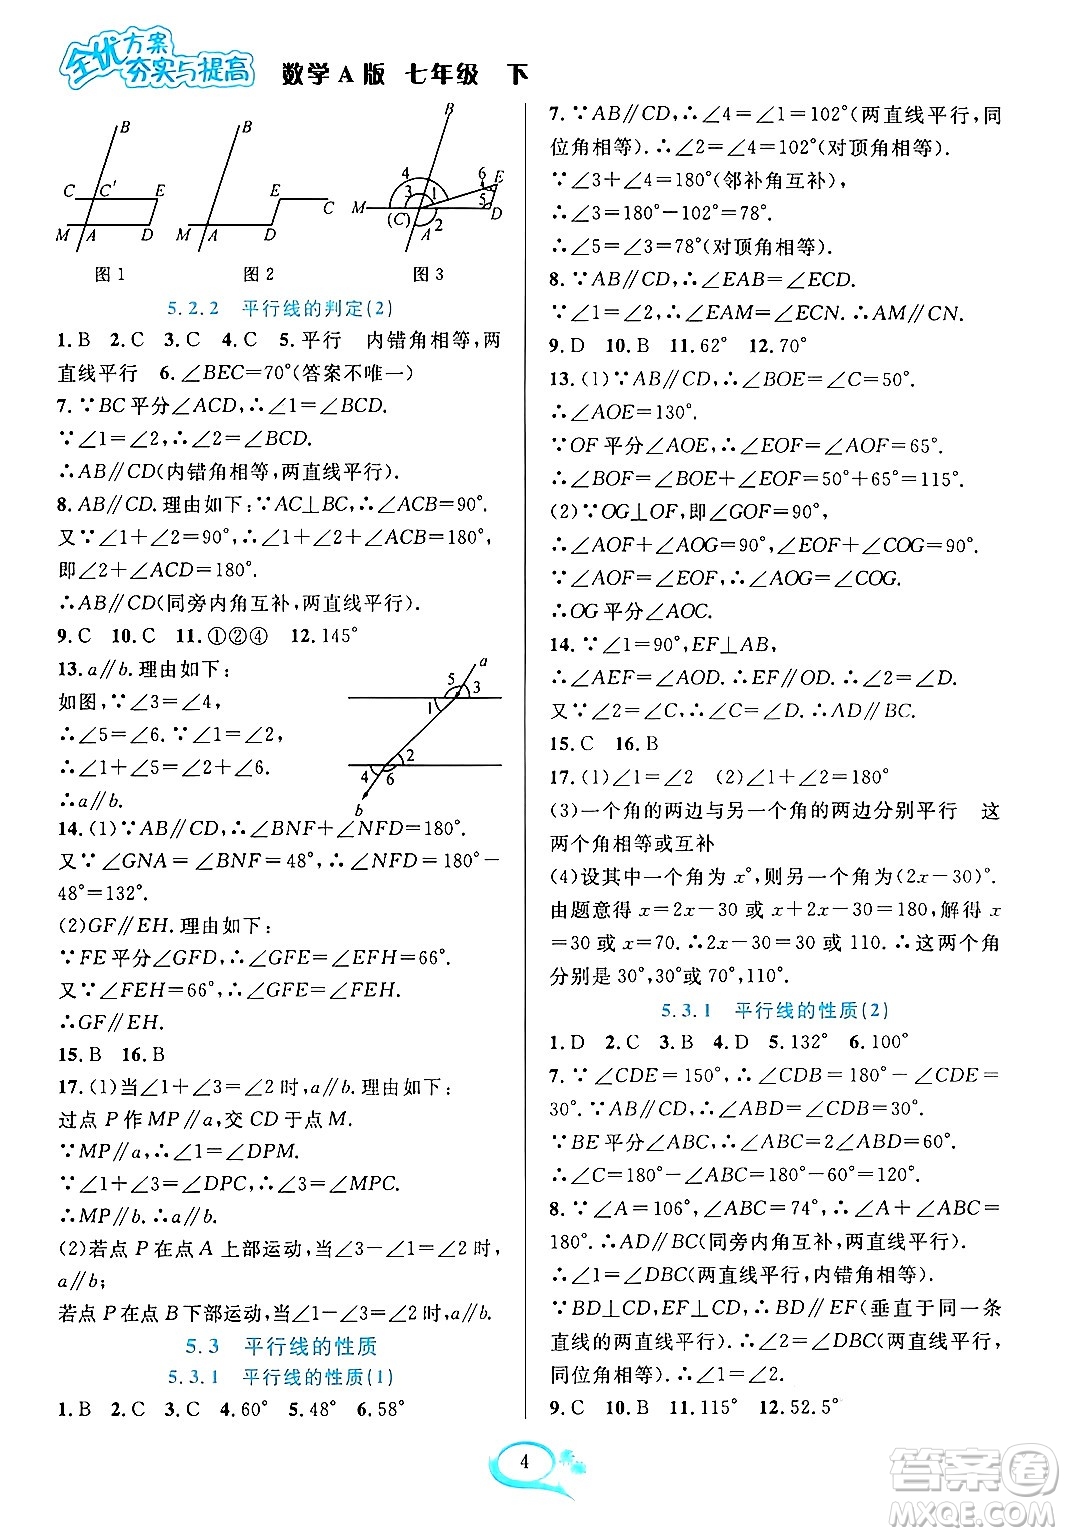 全优方案
夯实与提高
数学A版 七年级 下
B
C C' E
M A D
图1
B
E
C
M A D
图2
B
4 6 E
3 1 5
M (C) 2 D
A
图3
5.2.2 平行线的判定(2)
1.B 2.C 3.C 4.C 5.平行 内错角相等,两
直线平行 6.∠BEC=70°(答案不唯一)
7.∵BC平分∠ACD,∴∠1=∠BCD.
∵∠1=∠2,∴∠2=∠BCD.
∴AB∥CD(内错角相等,两直线平行).
8.AB∥CD.理由如下:∵AC⊥BC,∴∠ACB=90°.
又∵∠1+∠2=90°,∴∠1+∠2+∠ACB=180°,
即∠2+∠ACD=180°.
∴AB∥CD(同旁内角互补,两直线平行).
9.C 10.C 11.①②④ 12.145°
13.a∥b.理由如下:
如图,∵∠3=∠4,
∴∠5=∠6.∵∠1=∠2,
∴∠1+∠5=∠2+∠6.
∴a∥b.
a
5 3
1
2
4 6
b
14.(1)∵AB∥CD,∴∠BNF+∠NFD=180°.
又∵∠GNA=∠BNF=48°,∴∠NFD=180°-
48°=132°.
(2)GF∥EH.理由如下:
∵FE平分∠GFD,∴∠GFE=66°.
又∵∠FEH=66°,∴∠GFE=∠FEH.
∴GF∥EH.
15.B 16.B
17.(1)当∠1+∠3=∠2时,a∥b.理由如下:
过点P作MP∥a,交CD于点M.
∵MP∥a,∴∠1=∠DPM.
∵∠1+∠3=∠DPC,∴∠3=∠MPC.
∴MP∥b.∴a∥b.
(2)若点P在点A上部运动,当∠3-∠1=∠2时,
a∥b;
若点P在点B下部运动,当∠1-∠3=∠2时,a∥b.
5.3 平行线的性质
5.3.1 平行线的性质(1)
1.B 2.C 3.C 4.60° 5.48° 6.58°
7.∵AB∥CD,∴∠4=∠1=102°(两直线平行,同
位角相等).∴∠2=∠4=102°(对顶角相等).
∵∠3+∠4=180°(邻补角互补),
∴∠3=180°-102°=78°.
∴∠5=∠3=78°(对顶角相等).
8.∵AB∥CD,∴∠EAB=∠ECD.
∵∠1=∠2,∴∠EAM=∠ECN.∴AM∥CN.
9.D 10.B 11.62° 12.70°
13.(1)∵AB∥CD,∴∠BOE=∠C=50°.
∴∠AOE=130°.
∵OF平分∠AOE,∴∠EOF=∠AOF=65°.
∴∠BOF=∠BOE+∠EOF=50°+65°=115°.
(2)∵OG⊥OF,即∠GOF=90°,
∴∠AOF+∠AOG=90°,∠EOF+∠COG=90°.
∵∠AOF=∠EOF,∴∠AOG=∠COG.
∴OG平分∠AOC.
14.∵∠1=90°,EF⊥AB,
∴∠AEF=∠AOD.∴EF∥OD.∴∠2=∠D.
又∵∠2=∠C,∴∠C=∠D.∴AD∥BC.
15.C 16.B
17.(1)∠1=∠2 (2)∠1+∠2=180°
(3)一个角的两边与另一个角的两边分别平行 这
两个角相等或互补
(4)设其中一个角为x°,则另一个角为(2x-30)°.
由题意得x=2x-30或x+2x-30=180,解得x
=30或x=70.∴2x-30=30或110.∴这两个角
分别是30°,30°或70°,110°.
5.3.1 平行线的性质(2)
1.D 2.C 3.B 4.D 5.132° 6.100°
7.∵∠CDE=150°,∴∠CDB=180°-∠CDE=
30°.∵AB∥CD,∴∠ABD=∠CDB=30°.
∵BE平分∠ABC,∴∠ABC=2∠ABD=60°.
∴∠C=180°-∠ABC=180°-60°=120°.
8.∵∠A=106°,∠ABC=74°,∴∠A+∠ABC=
180°.∴AD∥BC(同旁内角互补,两直线平行).
∴∠1=∠DBC(两直线平行,内错角相等).
∵BD⊥CD,EF⊥CD,∴BD∥EF(垂直于同一条
直线的两直线平行).∴∠2=∠DBC(两直线平行,
同位角相等).∴∠1=∠2.
9.C 10.B 11.115° 12.52.5°
4
答案卷
MXQE.COM